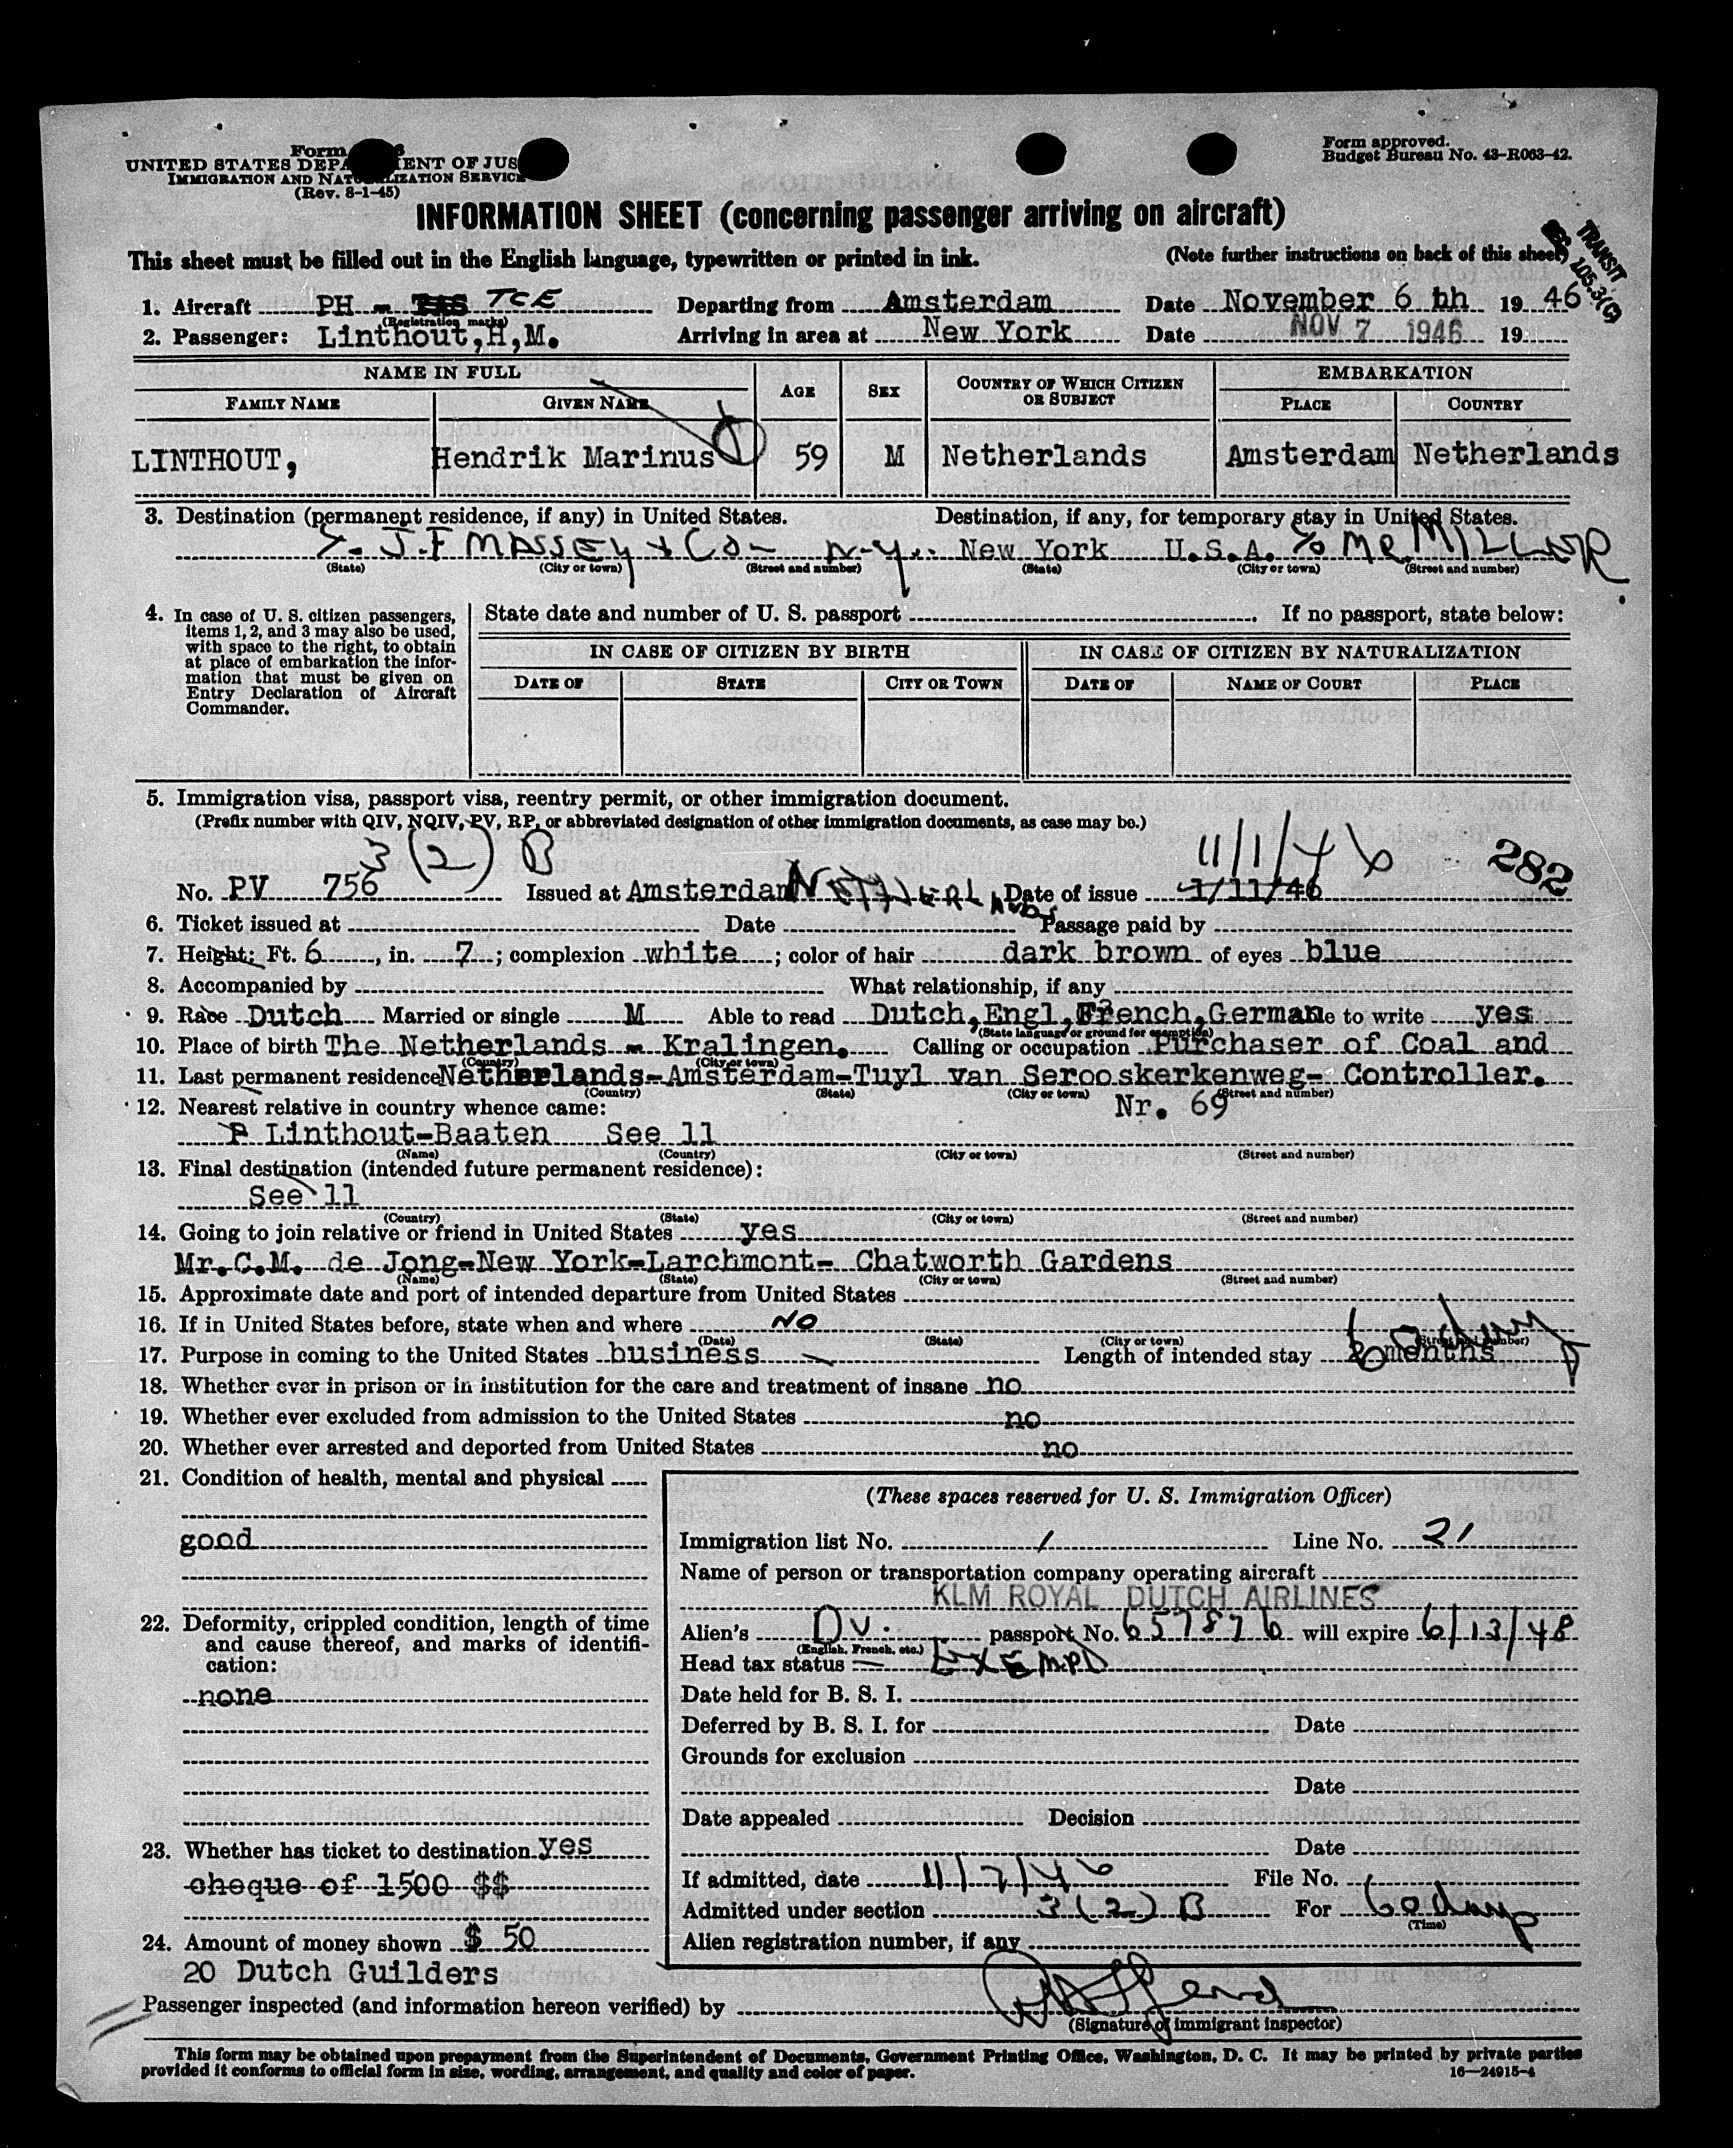 Form
UNITED STATES DEPA ENT OF JUS
IMMIGRATION AND NAT LIZATION SERVICE
(Rev. 8-1-45)
Form approved.
Budget Bureau No. 43-R063-42.
INFORMATION SHEET (concerning passenger arriving on aircraft)
This sheet must be filled out in the English language, typewritten or printed in ink. (Note further instructions on back of this sheet)
TRANSIT
SEC 105.3(c)
1. Aircraft PH - TCE Departing from Amsterdam Date November 6 th 1946
(Registration marks)
2. Passenger: Linthout,H,M. Arriving in area at New York Date NOV 7 1946 19
NAME IN FULL AGE SEX COUNTRY OF WHICH CITIZEN OR SUBJECT EMBARKATION
FAMILY NAME GIVEN NAME PLACE COUNTRY
LINTHOUT, Hendrik Marinus 59 M Netherlands Amsterdam Netherlands
3. Destination (permanent residence, if any) in United States. Destination, if any, for temporary stay in United States.
J.F MASSEY & Co- N-Y. New York U.S.A. c/o MR MILLER
(State) (City or town) (Street and number) (State) (City or town) (Street and number)
4. In case of U. S. citizen passengers, items 1, 2, and 3 may also be used, with space to the right, to obtain at place of embarkation the information that must be given on Entry Declaration of Aircraft Commander.
State date and number of U. S. passport If no passport, state below:
IN CASE OF CITIZEN BY BIRTH IN CASE OF CITIZEN BY NATURALIZATION
DATE OF STATE CITY OR TOWN DATE OF NAME OF COURT PLACE
5. Immigration visa, passport visa, reentry permit, or other immigration document.
(Prefix number with QIV, NQIV, PV, RP, or abbreviated designation of other immigration documents, as case may be.)
3(2) B 11/1/46 282
No. PV 756 Issued at Amsterdam NETHERLANDS Date of issue 1/11/46
6. Ticket issued at Date Passage paid by
7. Height: Ft. 6, in. 7; complexion white; color of hair dark brown of eyes blue
8. Accompanied by What relationship, if any
9. Race Dutch Married or single M Able to read Dutch,Engl,French,German to write yes
(State language or ground for exemption)
10. Place of birth The Netherlands - Kralingen. Calling or occupation Purchaser of Coal and
(Country) (City or town)
11. Last permanent residence Netherlands-Amsterdam-Tuyl van Serooskerkenweg- Controller.
(Country) (State) (City or town) (Street and number)
12. Nearest relative in country whence came: Nr. 69
P Linthout-Baaten See 11
(Name) (Country) (City or town) (Street and number)
13. Final destination (intended future permanent residence):
See 11
(Country) (State) (City or town) (Street and number)
14. Going to join relative or friend in United States yes
Mr.C.M. de Jong-New York-Larchmont- Chatworth Gardens
(Name) (State) (City or town) (Street and number)
15. Approximate date and port of intended departure from United States
16. If in United States before, state when and where NO
(Date) (State) (City or town) (Street and number)
17. Purpose in coming to the United States business Length of intended stay 2 months 60 days
18. Whether ever in prison or in institution for the care and treatment of insane no
19. Whether ever excluded from admission to the United States no
20. Whether ever arrested and deported from United States no
21. Condition of health, mental and physical
good
22. Deformity, crippled condition, length of time and cause thereof, and marks of identification:
none
23. Whether has ticket to destination yes
cheque of 1500 $$
24. Amount of money shown $ 50
20 Dutch Guilders
(These spaces reserved for U. S. Immigration Officer)
Immigration list No. 1 Line No. 21
Name of person or transportation company operating aircraft
KLM ROYAL DUTCH AIRLINES
Alien's Du. passport No. 657876 will expire 6/13/48
(English, French, etc.)
Head tax status EXEMPT
Date held for B. S. I.
Deferred by B. S. I. for Date
Grounds for exclusion
Date
Date appealed Decision
Date
If admitted, date 11/7/46 File No.
Admitted under section 3(2) B For 60 days
(Time)
Alien registration number, if any
Passenger inspected (and information hereon verified) by
(Signature of immigrant inspector)
This form may be obtained upon prepayment from the Superintendent of Documents, Government Printing Office, Washington, D. C. It may be printed by private parties
provided it conforms to official form in size, wording, arrangement, and quality and color of paper. 16—24915-4